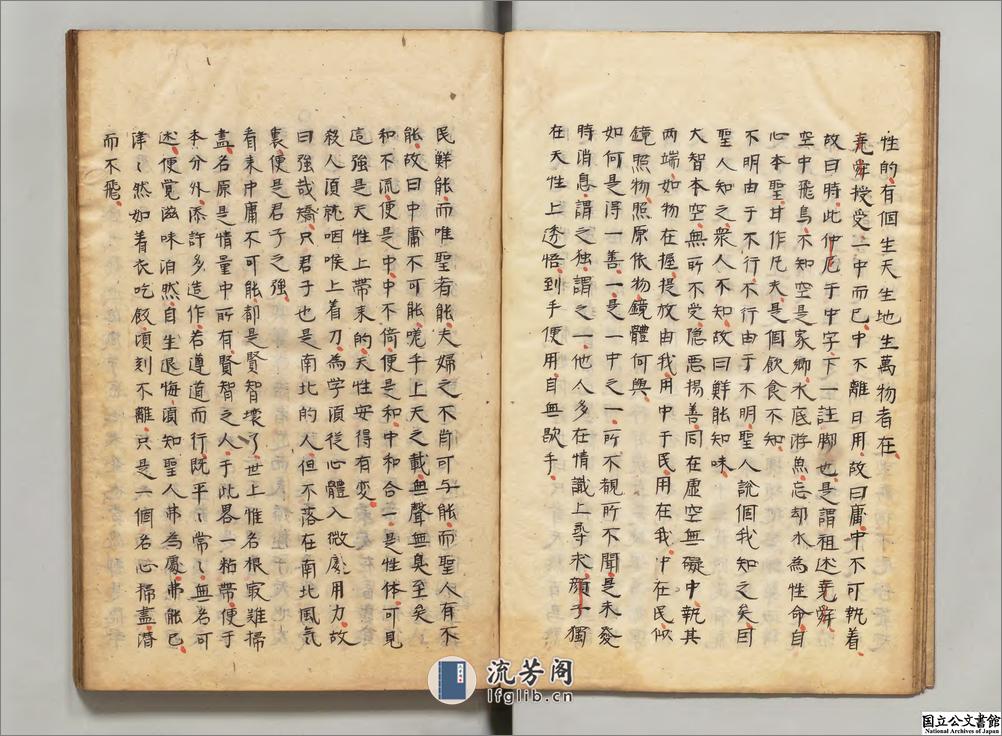 性的有個生天生地生萬物者在
堯舜授受一中而已中不離日用故曰庸中不可執着
故曰時此仲尼于中字下一註脚也是謂祖述堯舜
空中飛鳥不知空是家鄉水底游魚忘却水為性命自
心本聖甘作凡夫是個飲食不知
不明由于不行不行由于不明聖人說個我知之矣曰
聖人知之衆人不知故曰鮮能知味
大智本空無所不受隐惡揚善同在虛空無礙中執其
两端如物在握提放由我用中于民用在我中在民似
鏡照物物照原依物鏡體何與
如何是得一善一是一中之一所不覩所不聞是未發
時消息謂之独謂之一他人多在情識上尋求顏子獨
在天性上透悟到手便用自無歇手
民鮮能而唯聖者能夫婦之不肖可与能而聖人有不
能故曰中庸不可能嗟乎上天之載無聲無臭至矣
和不流便是中中不倚便是和中和合一是性体可見
這強是天性上帶来的天性安得有変
殺人須就咽喉上着刀為学須從心體入微處用力故
曰強哉矯只君子也是南北的人但不落在南北風氣
裏便是君子之強
看来中庸不可能都是賢智壊了世上惟名根寂難掃
盡名原是情量中所有賢智之人于此畧一粘帶便于
本分外添許多造作若遵道而行既平〻常〻無名可
述便覚滋味泊然自生退悔須知聖人弗為處弗能已
津〻然如着衣吃飯頃刻不離只是一個名心掃盡潛
而不飛
流芳阁
lfglib.cn
国立公文書館
National Archives of Japan